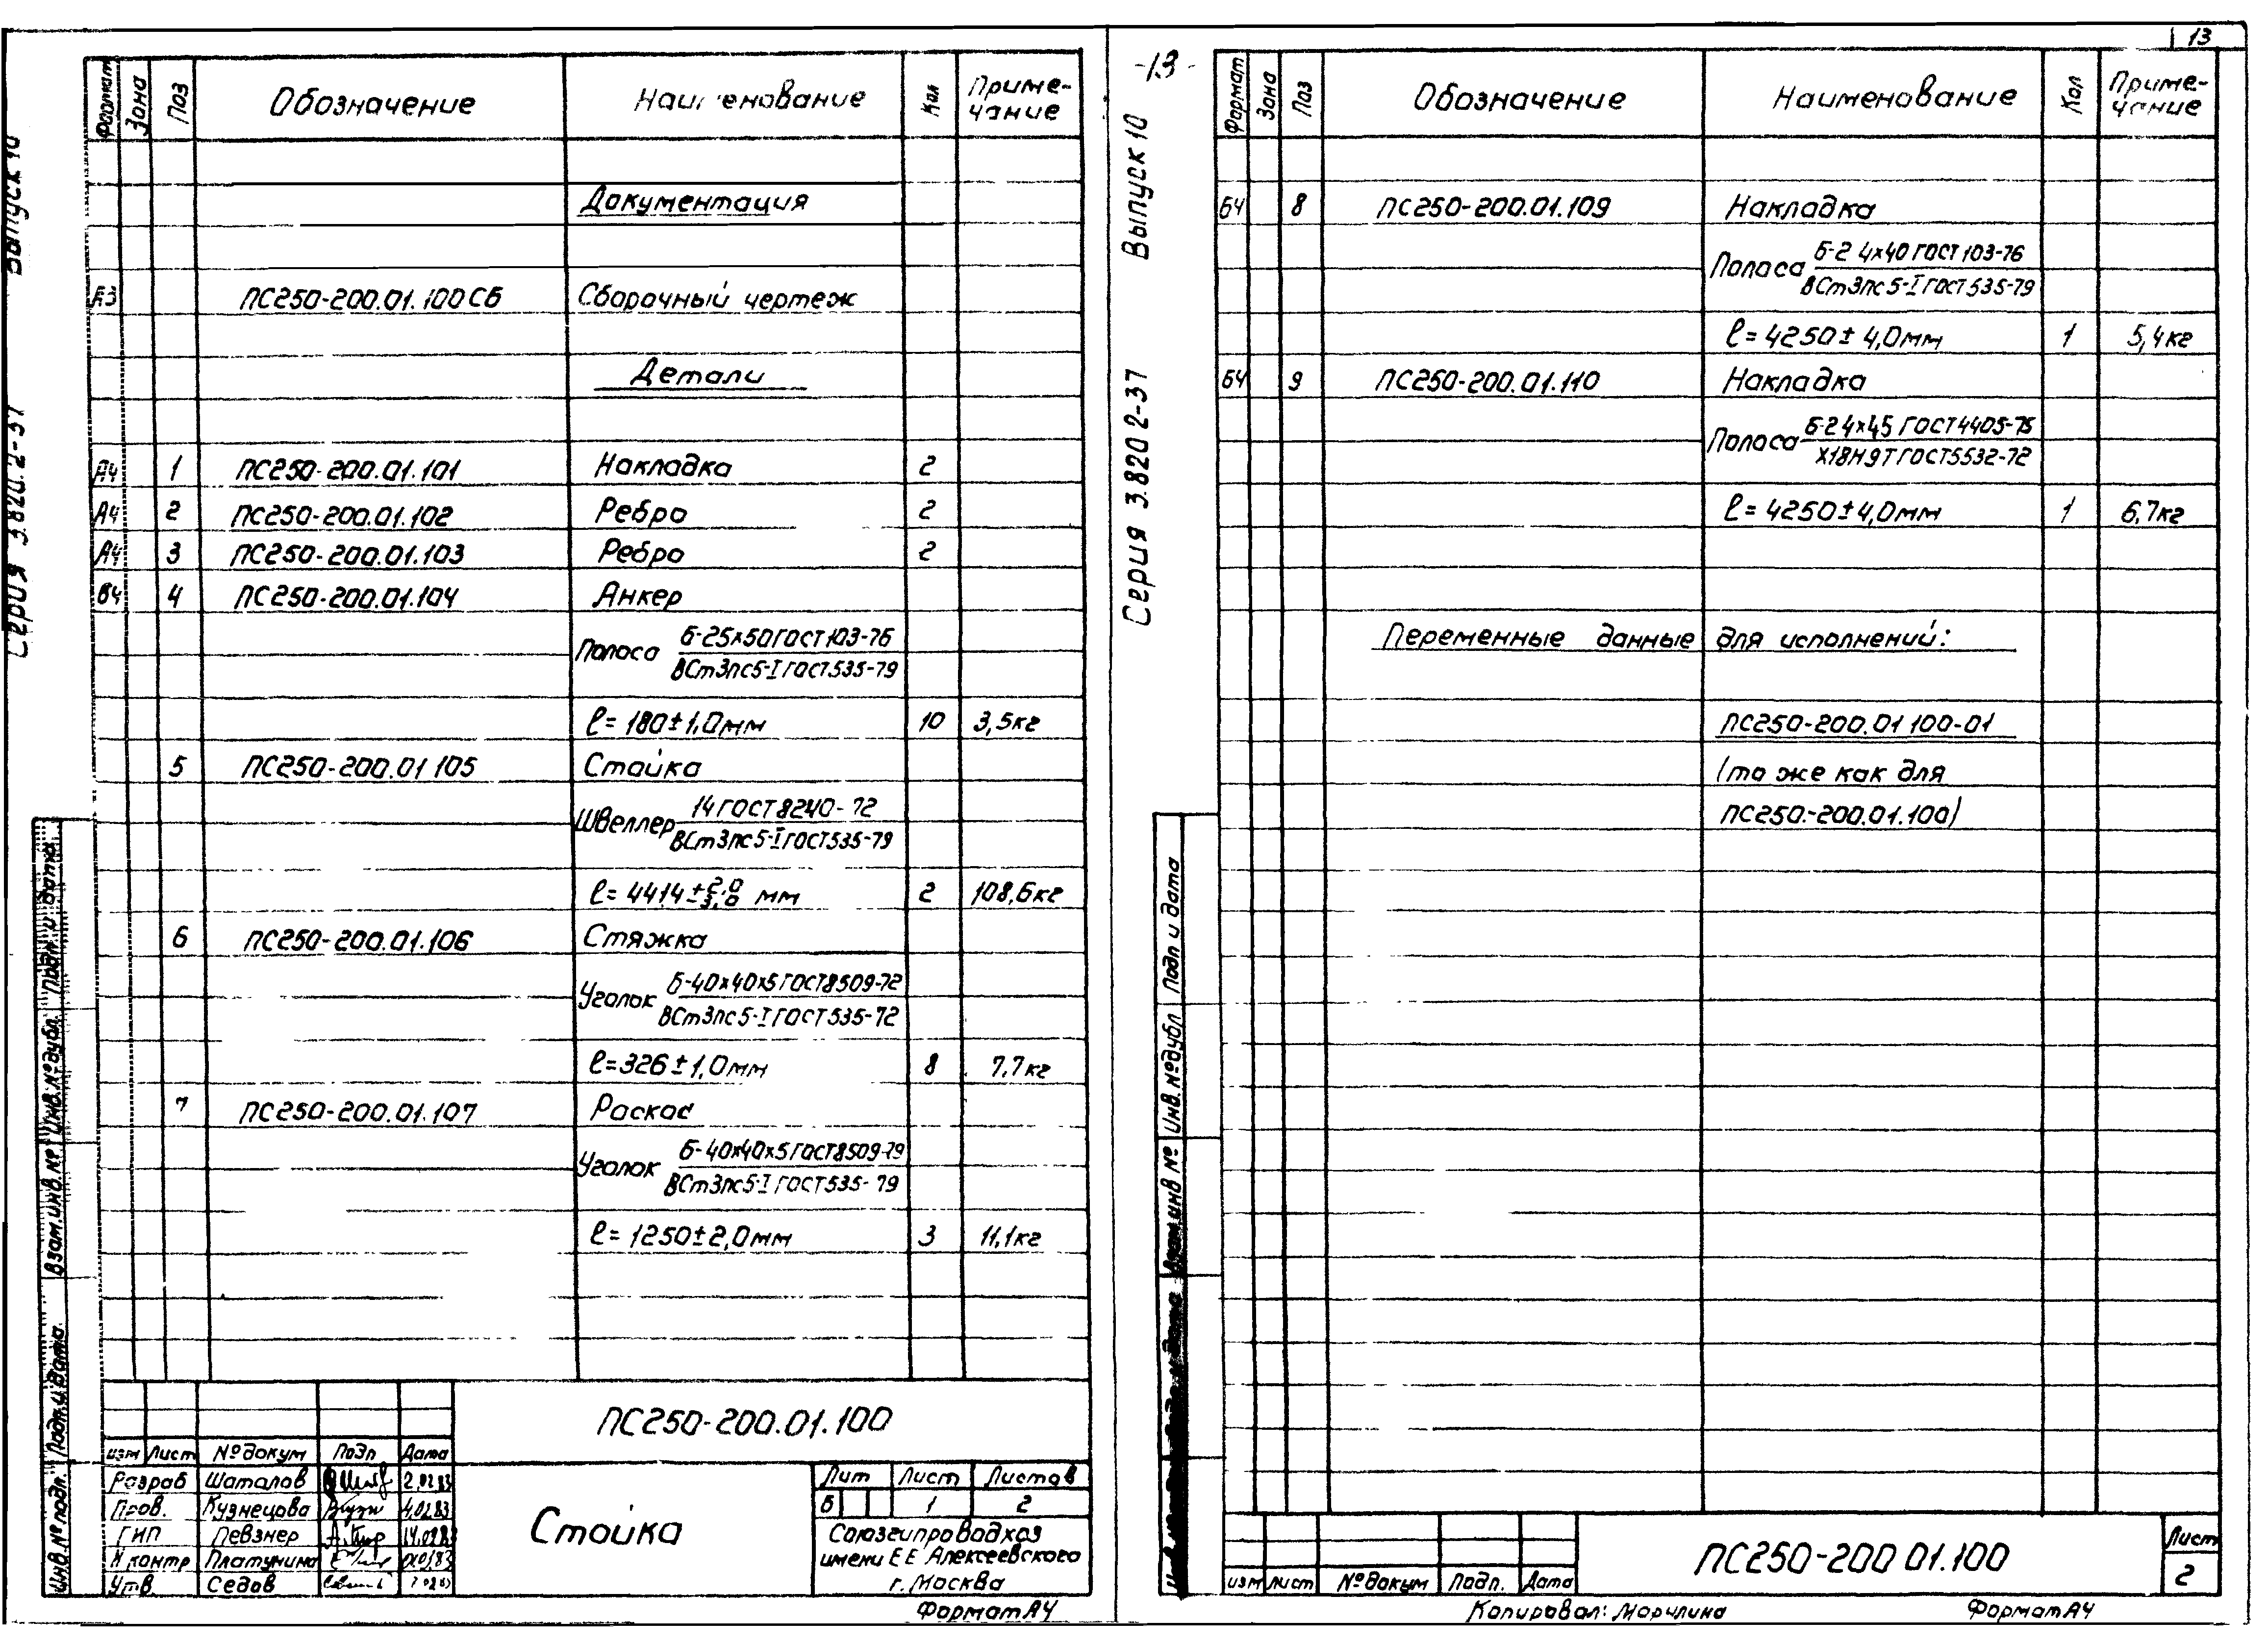 Серия 3.820.2-37 Выпуск 10
Формат Зона Поз Обозначение Наименование Кол Приме-
чание
Документация
А3 ПС250-200.01.100СБ Сборочный чертеж
Детали
А4 1 ПС250-200.01.101 Накладка 2
А4 2 ПС250-200.01.102 Ребро 2
А4 3 ПС250-200.01.103 Ребро 2
Б4 4 ПС250-200.01.104 Анкер
Полоса Б-25х50 ГОСТ 103-76
ВСт3пс5-I ГОСТ 535-79
ℓ= 180±1,0мм 10 3,5кг
5 ПС250-200.01 105 Стойка
Швеллер 14 ГОСТ 8240-72
ВСт3пс5-I ГОСТ 535-79
ℓ= 4414 мм 2 108,6кг
6 ПС250-200.01.106 Стяжка
Уголок Б-40х40х5 ГОСТ 8509-72
ВСт3пс5-I ГОСТ 535-72
ℓ=326±1,0мм 8 7,7кг
7 ПС250-200.01.107 Раскос
Уголок Б-40х40х5 ГОСТ 8509-79
ВСт3пс5-I ГОСТ 535-79
ℓ= 1250±2,0мм 3 11,1кг
Инв.№ подл. Подп. и дата Взам.инв.№ Инв.№ дубл. Подп. и дата
ПС250-200.01.100
изм Лист №докум Подп Дата
Разраб Шаталов 2.02.83
Пров. Кузнецова 4.02.83
ГИП Певзнер
Н контр Платунина
Утв. Седов
Стойка
Лит Лист Листов
Б 1 2
Союзгипроводхоз
имени Е Е Алексеевского
г. Москва
Формат А4
13
-13-
Серия 3.820 2-37 Выпуск 10
Формат Зона Поз Обозначение Наименование Кол Приме-
чание
БЧ 8 ПС250-200.01.109 Накладка
Полоса Б-2 4х40 ГОСТ 103-76
ВСт3пс5-I ГОСТ 535-79
ℓ= 4250± 4,0мм 1 5,4кг
БЧ 9 ПС250-200.01.110 Накладка
Полоса Б-2 4х45 ГОСТ 4405-75
Х18Н9Т ГОСТ 5532-72
ℓ= 4250±4,0мм 1 6,7кг
Переменные данные для исполнений:
ПС250-200.01 100-01
(то же как для
ПС250-200.01.100)
Взам.инв № Инв.№дубл Подп и дата
ПС250-200 01.100
Лист
2
изм лист №докум Подп. Дата
Копировал: Морчлина Формат А4